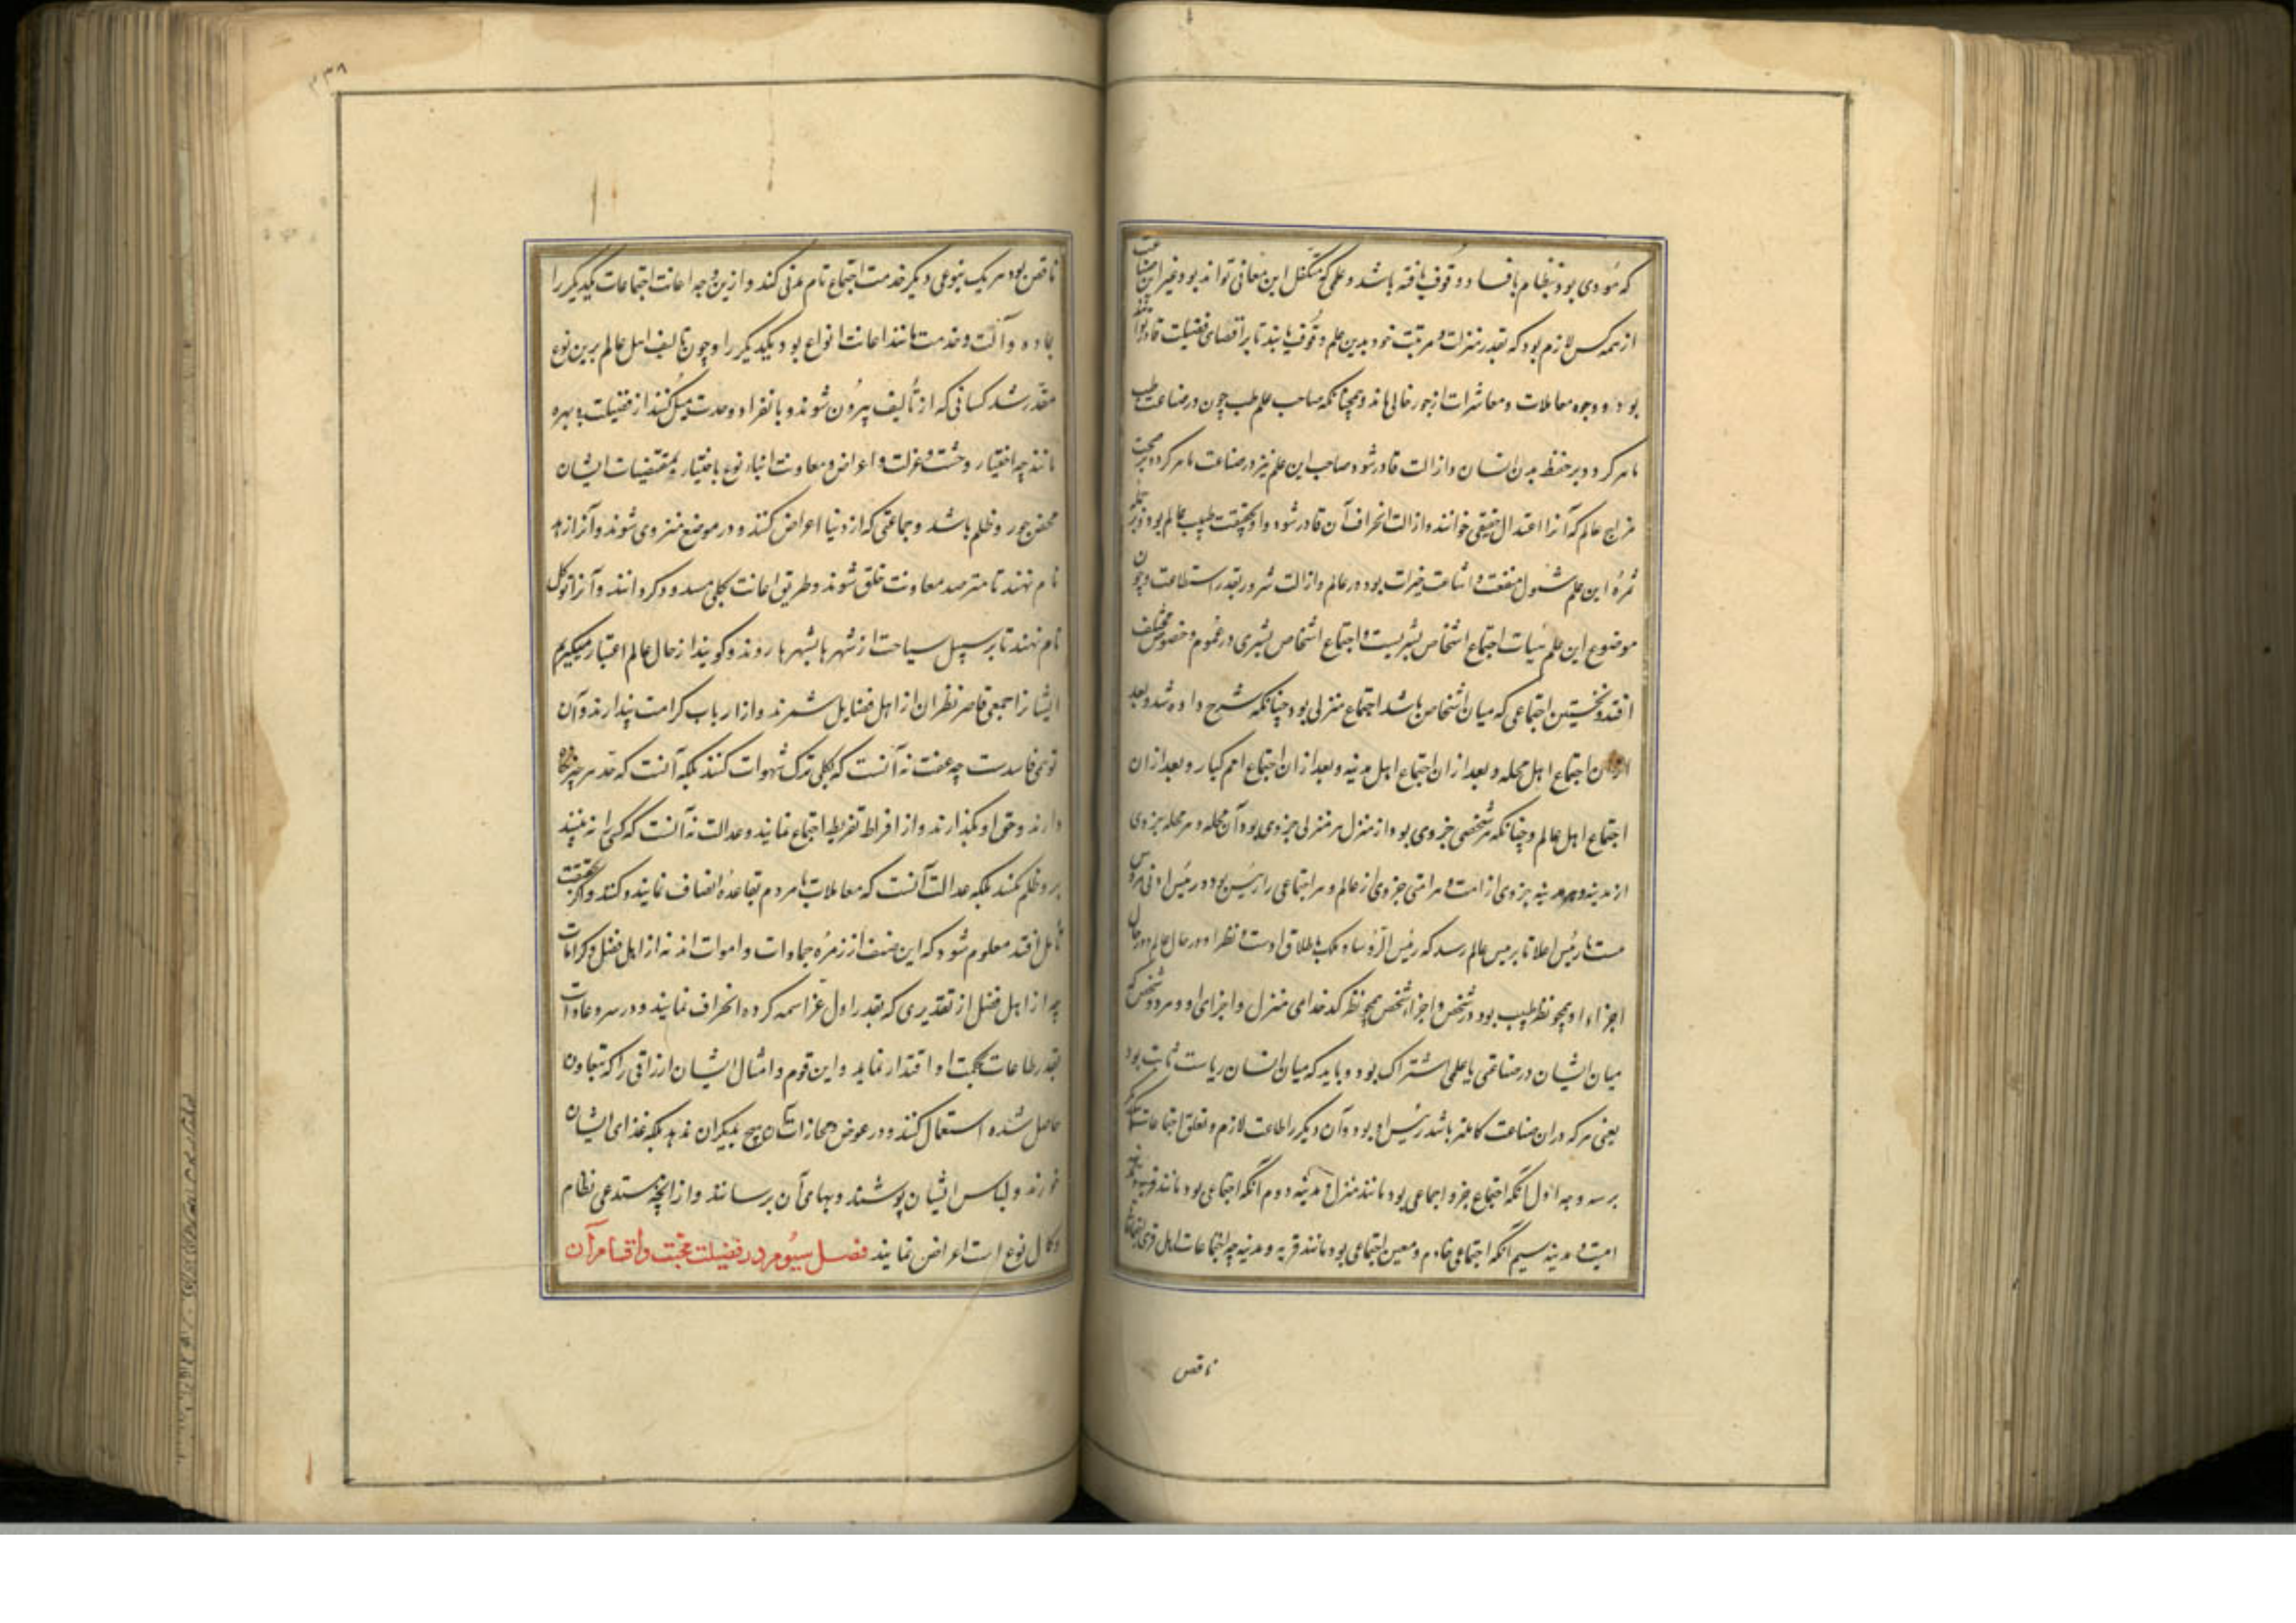 که مؤدی بود بنظام یا فساد وقوف یافته باشد و علمی که متکفل این معانی تواند بود غیر این صناعت
از همه کس لازم بود که بقدر منزلت و مرتبت خود بدین علم وقوف یابند تا بر اقتضای فضیلت قادر
بود و وجوه معاملات و معاشرات از جور خالی ماند و همچنانکه صاحب علم طب چون در صناعت طب
ماهر گردد بر حفظ بدن انسان و ازالت قادر شود صاحب این علم نیز در صناعت ماهر گردد بر صحت
مزاج عالم که آنرا اعتدال حقیقی خوانند و ازالت انحراف آن قادر شود و او بحقیقت طبیب عالم بود و بر جمله
ثمره این علم شمول منفعت و اشاعت خیرات بود در عالم و ازالت شرور بقدر استطاعت و چون
موضوع این علم هیات اجتماع اشخاص بشریست و اجتماع اشخاص بشری در عموم و خصوص مختلف
افتد و نخستین اجتماعی که میان اشخاص باشد اجتماع منزلی بود چنانکه شرح داده شد و بعد
ازان اجتماع اهل محله و بعد ازان اجتماع اهل مدینه و بعد ازان اجتماع امم کبار و بعد ازان
اجتماع اهل عالم و چنانکه هر شخصی جزوی بود از منزل هر منزلی جزوی بود آن محله و هر محله جزوی
از مدینه و هر مدینه جزوی از امت و هر امتی جزوی از عالم و هر اجتماعی را رئیس بود و رئیس ادنی مرؤس
است تا رئیس اعلا تا برئیس عالم رسد که رئیس الرؤسا و ملک باطلاق اوست و نظر او در حال عالم و در حال
اجزاء او همچو نظر طبیب بود در شخص و اجزاء شخص همچو نظر کدخدای منزل و اجزای او و هر دو شخص که
میان ایشان در صناعتی یا علمی اشتراک بود و باید که میان انسان ریاست ثابت بود
یعنی هر که دران صناعت کاملتر باشد رئیس او بود و آن دیگر را طاعت لازم و تعلق اجتماعات بیکدیگر
بر سه وجه اول آنکه اجتماع جزو اجماعی بود مانند منزل و مدینه دوم آنکه اجتماعی بود مانند
امت و مدینه سیم آنکه اجتماعی خادم و معین اجتماعی بود مانند قریه و مدینه چه اجتماعات اهل قری
ناقص
۲۳۸
ناقص بود هر یک بنوعی دیگر خدمت اجتماع تام مدنی کند و ازین وجه اعانت اجتماعات یکدیگر را
بماده و آلت و خدمت مانند اعانت انواع بود یکدیگر را و چون تالیف اهل عالم برین نوع
مقدر شد کسانی که از تألیف بیرون شوند و بانفراد و وحدت میل کنند از فضیلت بی بهره
مانند چه اختیار وحشت و عزلت و اعراض از معاونت ابناء نوع با اختیار بمقتضیات ایشان
محض جور و ظلم باشد و جماعتی که از دنیا اعراض کنند و در موضع منزوی شوند و آنرا زهد
نام نهند تا مترصد معاونت خلق شوند و طریق اعانت بکلی مسدود گردانند و آنرا توکل
نام نهند تا بر سبیل سیاحت از شهرها بشهرها روند و گویند از حال عالم اعتبار میگیریم
ایشانرا جمعی قاصر نظران از اهل فضایل شمرند و از ارباب کرامت پندارند و آن
توهمی فاسدست چه عفت نه آنست که بکلی ترک شهوات کنند بلکه آنست که حد هر چیز نگاه
دارند و حق او بگذارند و از افراط تفریط اجتماع نمایند و عدالت نه آنست که کسی را نه بینند
برو ظلم نکنند بلکه عدالت آنست که معاملات با مردم بقاعده انصاف نمایند و کنند و اگر بحقیقت
تأمل افتد معلوم شود که این صنف از زمره جمادات و اموات اند نه از اهل فضل و کرامات
چه از اهل فضل از تقدیری که بقدر اول عز اسمه کرده انحراف نمایند و در سر و عادات
بقدر طاعات بحکمت او اقتدا نماید و این قوم و امثال ایشان ارزاقی را که بتعاون
حاصل شده استعمال کنند و در عوض و مجازات آن هیچ بدیگران ندهد بلکه غذای ایشان
خورند و لباس ایشان پوشند و بهای آن نرسانند و از آنچه مستدعی نظام
و کمال نوع است اعراض نمایند فصل سیوم در فضیلت محبت و اقسام آن